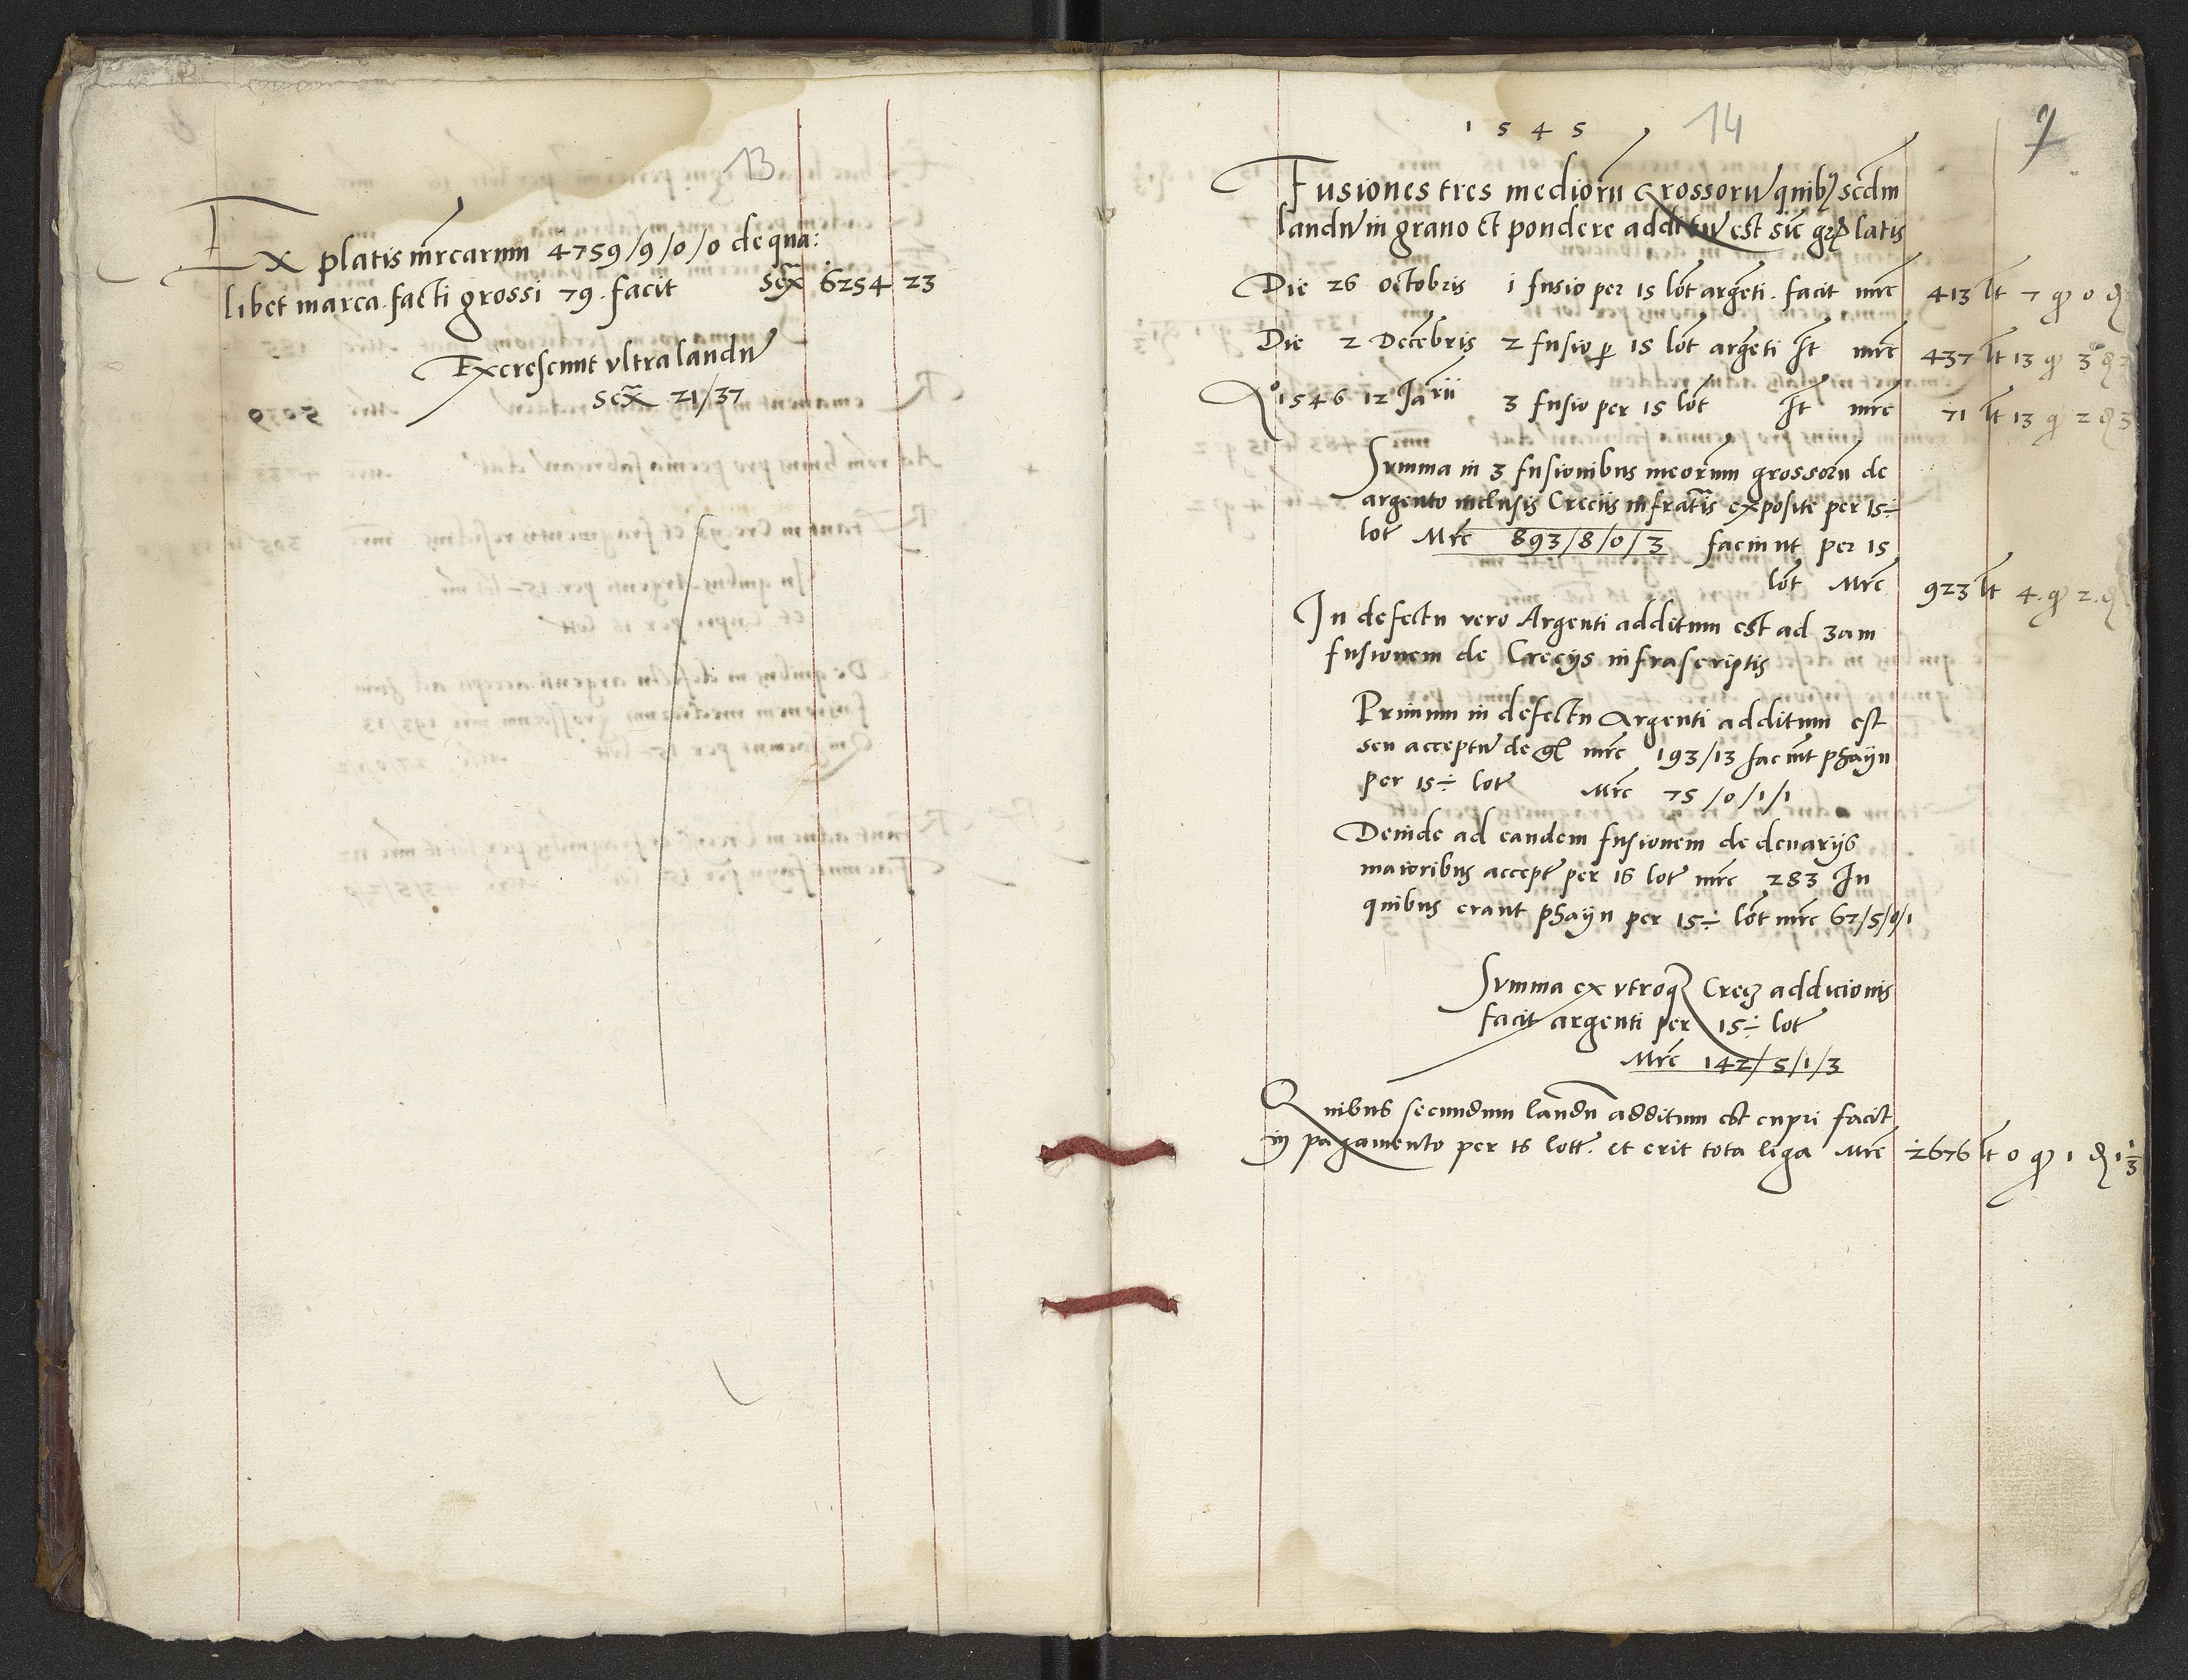 13
Ex platis mrcarum 4759/9/0/0 de qua:
libet marca facti grossi 79. facit sex 6254 23
Excrescunt vltra laudu
sex 21/37
1545
14
7
Fusiones tres medioru Grossoru quibz scdm
laudu in grano et pondere additu est sic
Die 26 octobris 1 fusio per 15 lot argeti. facit mrc 413 lt 7 q 0 d
Die 2 Decebris 2 fusio p 15 lot argeti ft mrc 437 lt 13 q 3 d 2
Ao 1546 12 Jarii 3 fusio per 15 lot ft mrc 71 lt 13 q 2 d 3
Summa in 3 fusionibus meorum grossoru de
argento inclusis Creciis infratis exposite per 15÷
lot Mrc 893/8/0/3 faciunt per 15
lot Mrc 923 lt 4. q 2. d
In defectu vero Argenti additum est ad 3am
fusionem de Crecijs infrascriptis
Primum in defectu Argenti additum est
seu acceptu de gl mrc 193/13 faciunt phayn
per 15÷ lot Mrc 75/0/1/1
Deinde ad eandem fusionem de denarijs
maioribus accept per 16 lot mrc 283 In
quibus erant phayn per 15÷ lot mrc 67/5/0/1
Summa ex vtroq Crecz addicionis
facit argenti per 15÷ lot
Mrc 142/5/1/3
Quibus secundum laudu additum est cupri facit
in pagamento per 16 lott. et erit tota liga Mrc 2676 lt 0 q 1 d 1 1/3